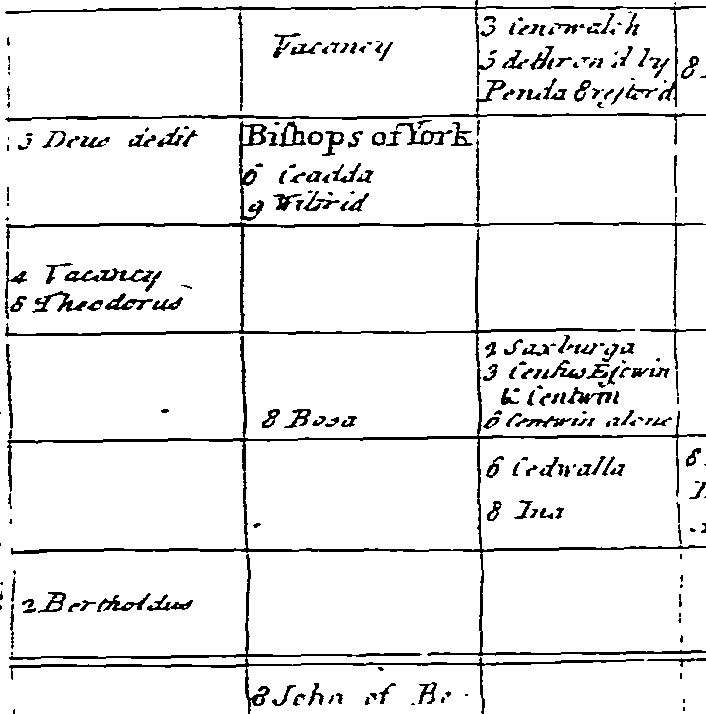 Vacancy
3 Cenowalch
5 dethron'd by
Penda & restord
8
5 Deus dedit
Biſhops of York
6 Ceadda
9 Wilfrid
4 Vacancy
8 Theodorus
2 Saxburga
3 Censius Eſcwin
& Centwin
6 Centwin alone
8 Bosa
6 Cedwalla
8
8 Ina
2 Bertholdus
8 John of Be